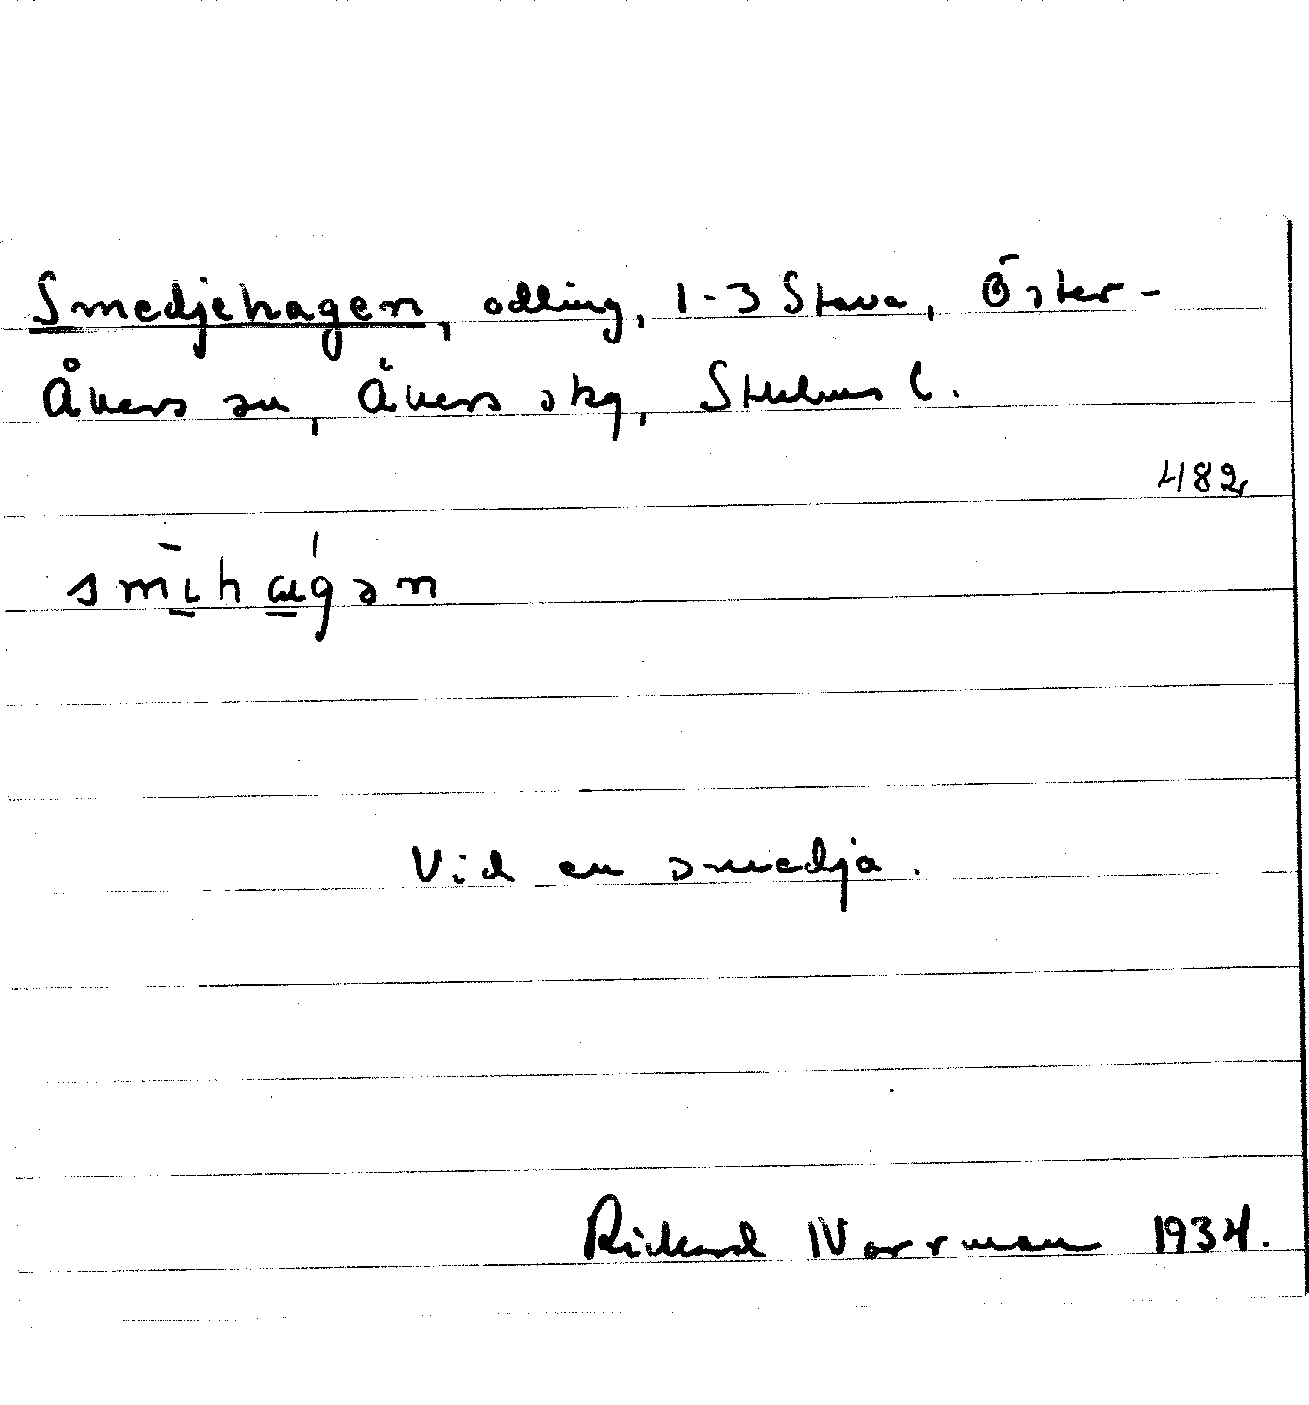 Smedjehagen, odling, 1-3 Stava, Öster-
Åkers sn, Åkers skg, Sthlms l.
482
smīhag̍ən
Vid en smedja.
Rickard Norrman 1934.